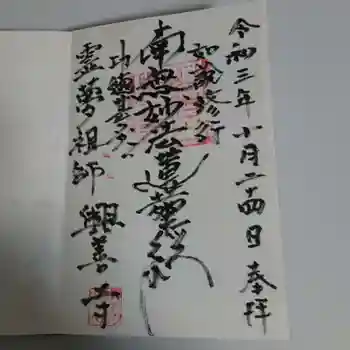 令和三年 十月二十四日 奉拝
如説修行
南無妙法蓮華経
功徳甚多
霊夢祖師 興善寺